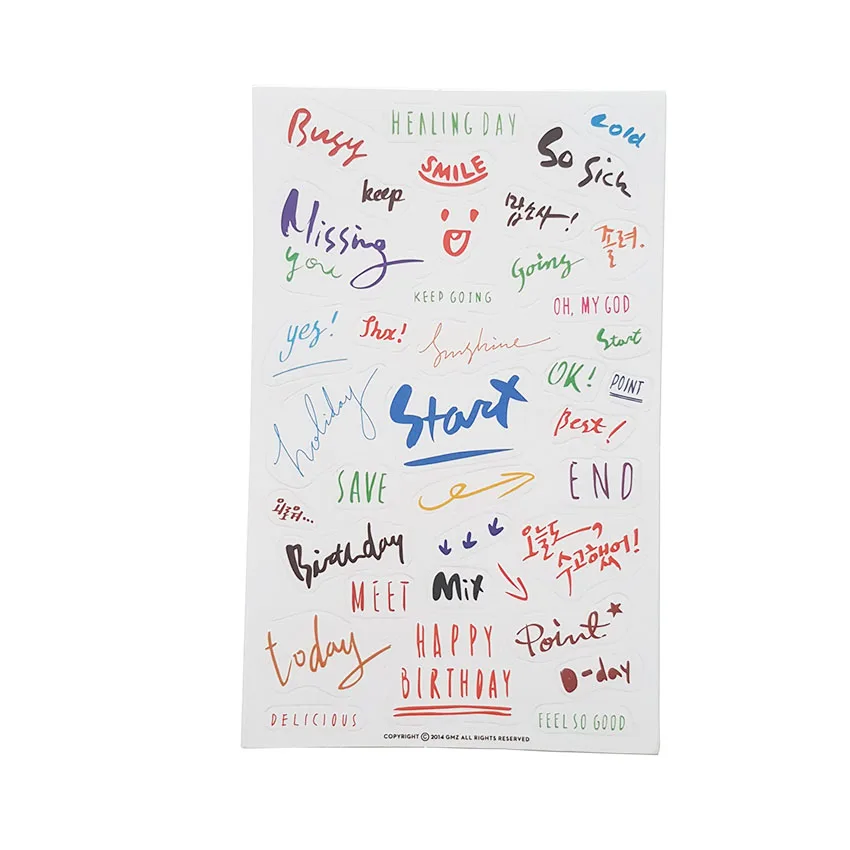 Busy
HEALING DAY
cold
SMILE
So Sick
keep
맙소사!
Missing
you
졸려.
Going
KEEP GOING
OH, MY GOD
yes!
Thx!
Sunshine
Start
holiday
Start
OK!
POINT
Best!
SAVE
END
외로워...
Birthday
오늘도
수고했어!
MEET
Mix
today
HAPPY
BIRTHDAY
Point
D-day
DELICIOUS
FEEL SO GOOD
COPYRIGHT © 2014 GMZ ALL RIGHTS RESERVED